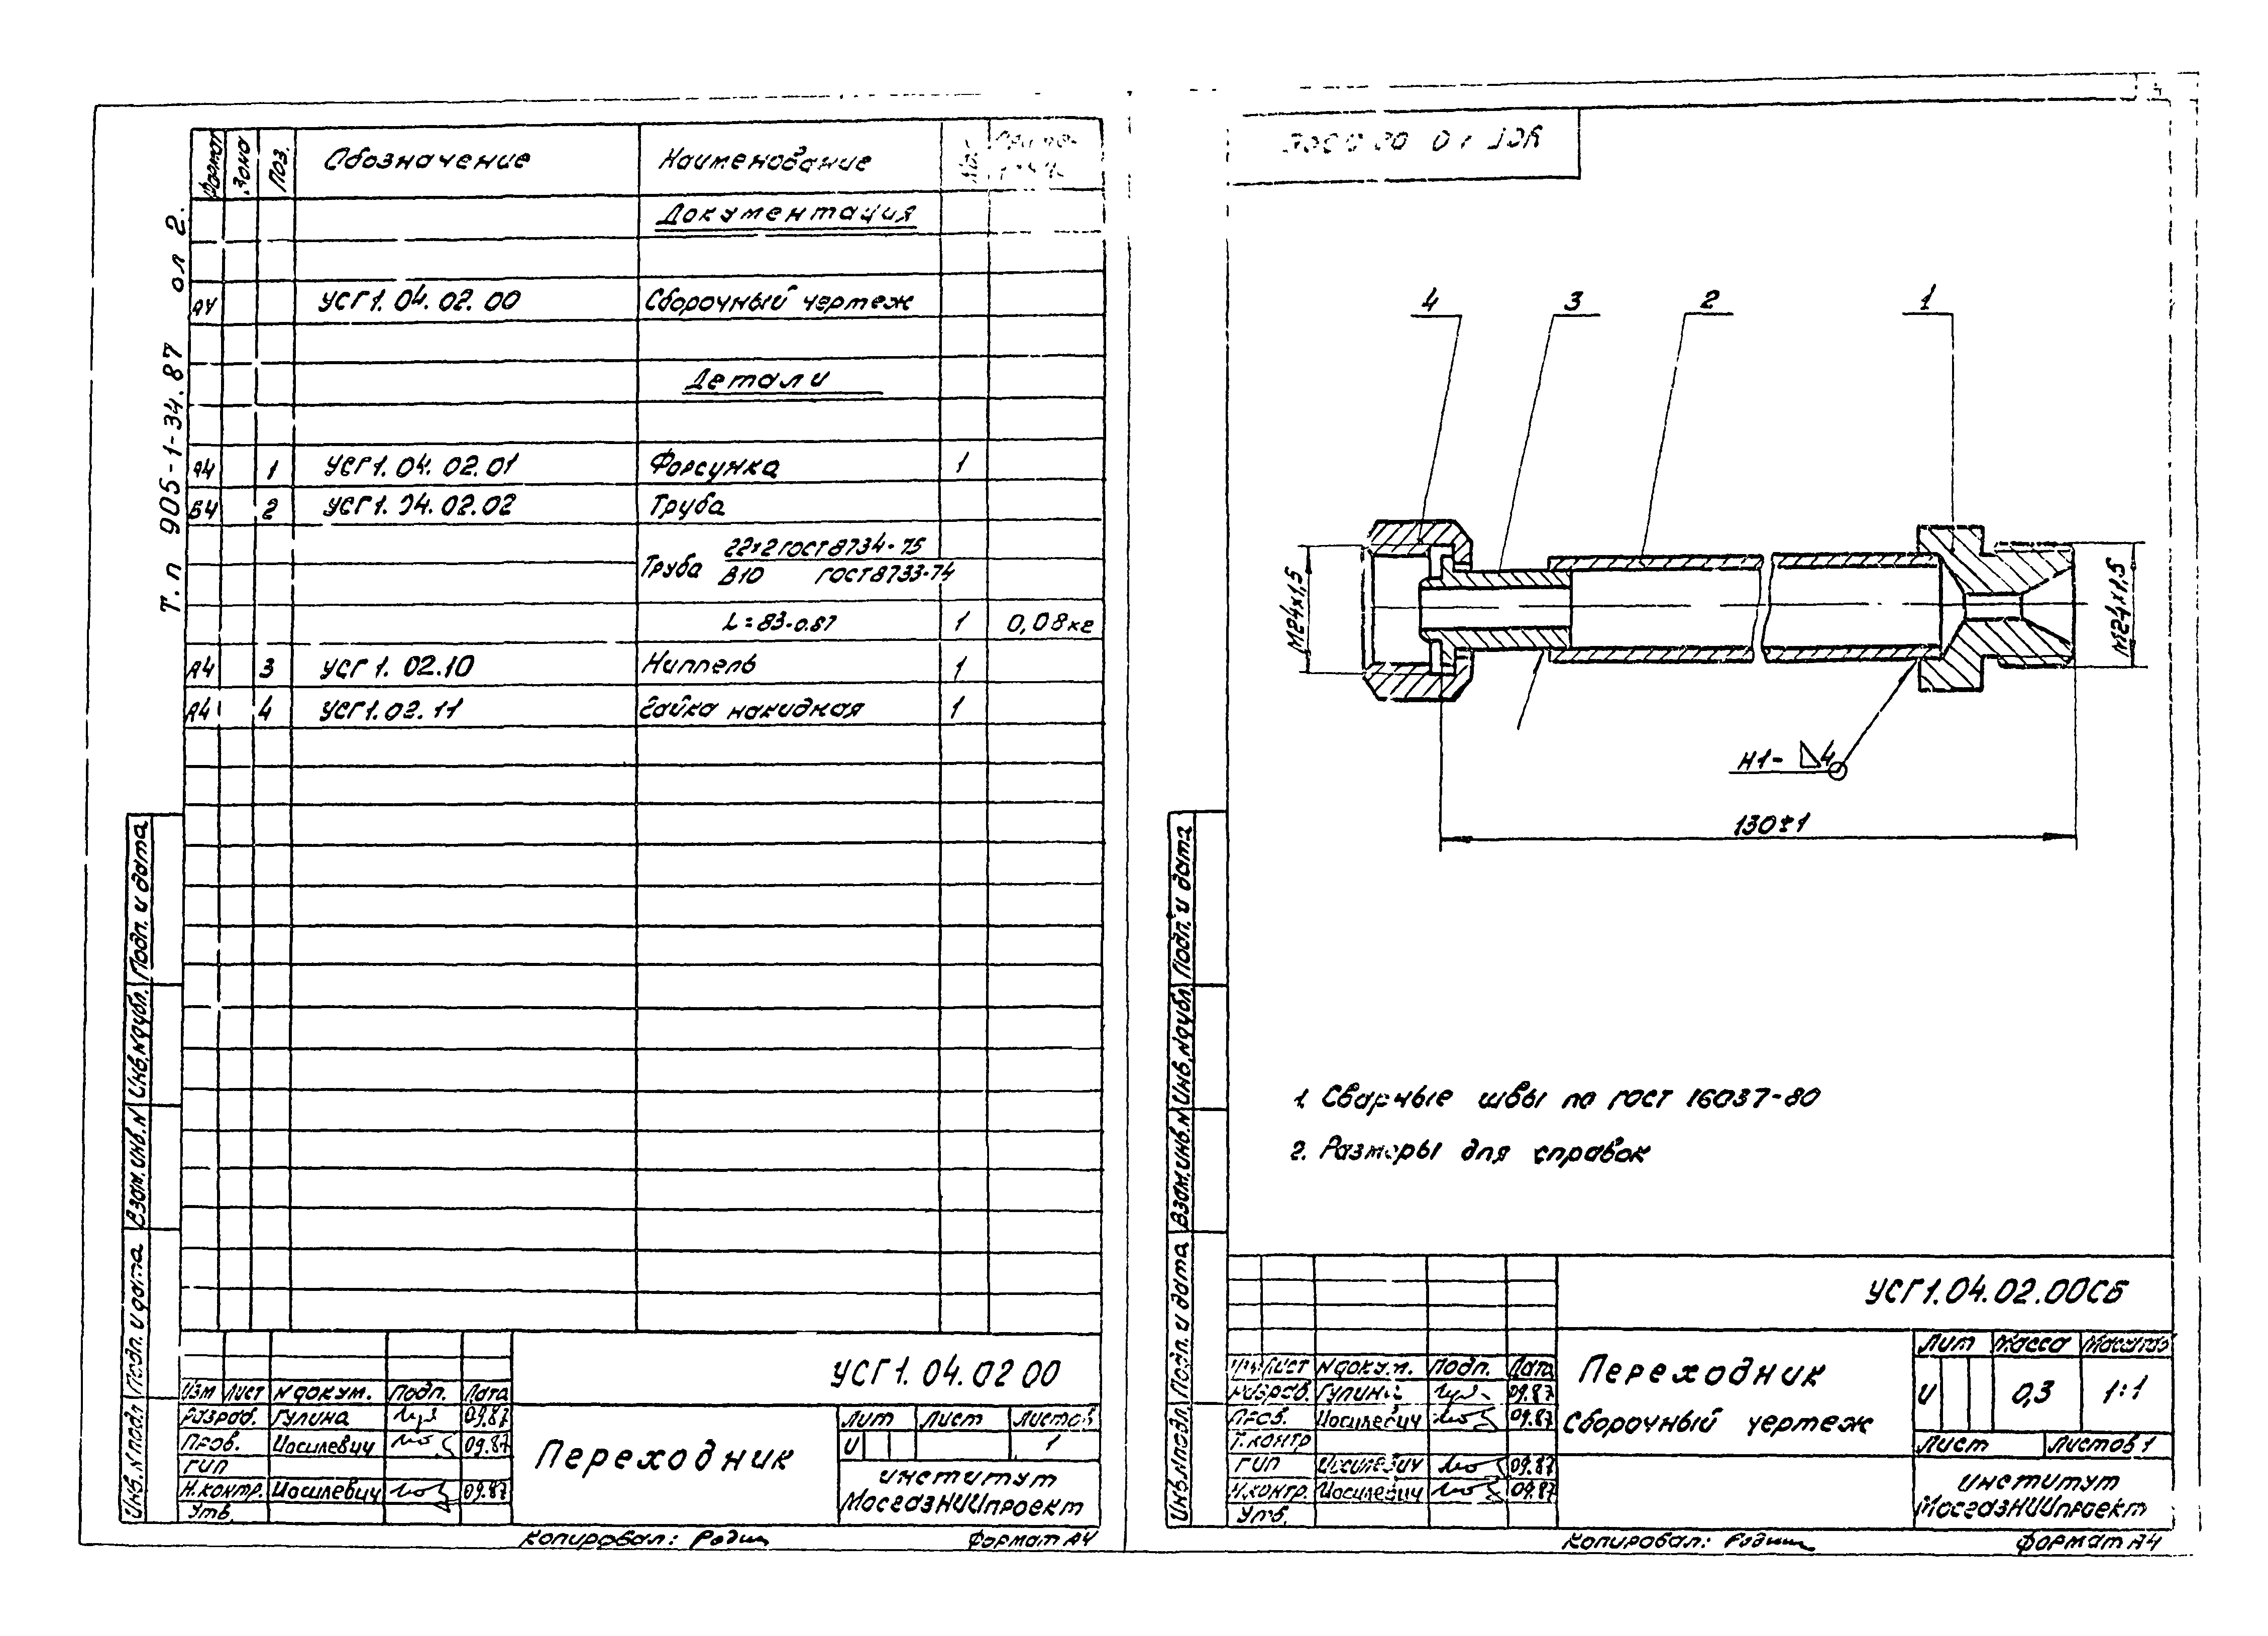 Т.п 905-1-34.87 ол 2.
Формат Зона Поз. Обозначение Наименование Кол.
Документация
А4 УСГ1.04.02.00 Сборочный чертеж
Детали
А4 1 УСГ1.04.02.01 Форсунка 1
Б4 2 УСГ1.04.02.02 Труба
Труба 22×2 ГОСТ 8734-75
В10 ГОСТ 8733-74
L=83-0.87 1 0,08кг
А4 3 УСГ1.02.10 Ниппель 1
А4 4 УСГ1.02.11 Гайка накидная 1
Подп. и дата
Инв.N дубл.
Взам.инв.N
Подп. и дата
Инв.N подл
УСГ1.04.02 00
Изм Лист N докум. Подп. Дата
Разраб. Гулина 09.87
Пров. Иосилевич 09.87
ГИП
Н.контр. Иосилевич 09.87
Утв.
Переходник
Лит Лист Листов
И 1
институт
МосгазНИИпроект
Копировал: Формат А4
4 3 2 1
М24×1,5
М24×1,5
Н1-◺4
130±1
1. Сварные швы по ГОСТ 16037-80
2. Размеры для справок
Подп. и дата
Инв.N дубл.
Взам.инв.N
Подп. и дата
Инв.N подл.
УСГ1.04.02.00СБ
Изм Лист N докум. Подп. Дата
Разраб. Гулина 09.87
Пров. Иосилевич 09.87
Т.контр
ГИП Иосилевич 09.87
Н.контр. Иосилевич 09.87
Утв.
Переходник
Сборочный чертеж
Лит Масса Масштаб
И 0,3 1:1
Лист Листов 1
институт
МосгазНИИпроект
Копировал: Формат А4